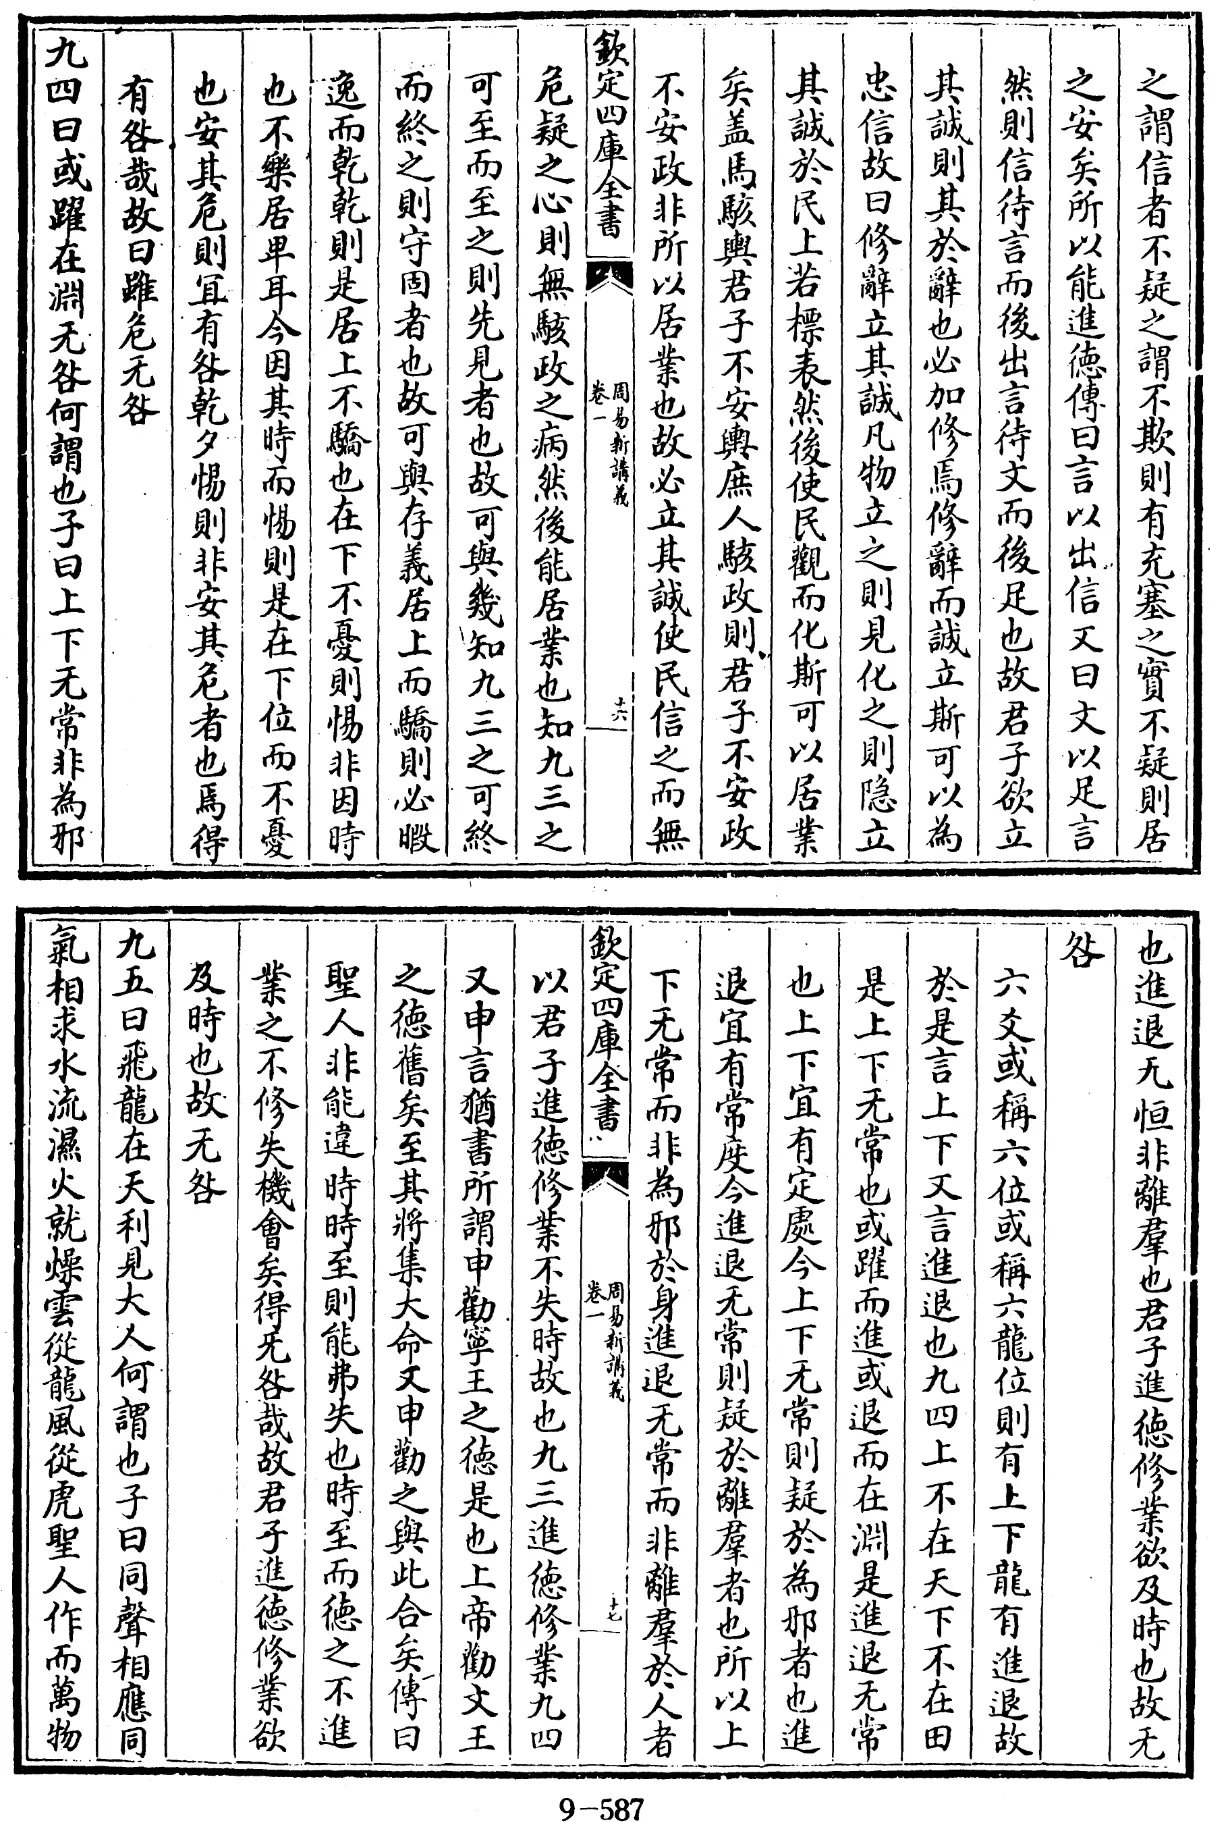 之謂信者不疑之謂不欺則有充塞之實不疑則居
之安矣所以能進德傳曰言以出信又曰文以足言
然則信待言而後出言待文而後足也故君子欲立
其誠則其於辭也必加修焉修辭而誠立斯可以為
忠信故曰修辭立其誠凡物立之則見化之則隐立
其誠於民上若標表然後使民觀而化斯可以居業
矣盖馬駭輿君子不安輿庶人駭政則君子不安政
不安政非所以居業也故必立其誠使民信之而無
欽定四庫全書
周易新講義
卷一
十六
危疑之心則無駭政之病然後能居業也知九三之
可至而至之則先見者也故可與幾知九三之可終
而終之則守固者也故可與存義居上而驕則必暇
逸而乾乾則是居上不驕也在下不憂則惕非因時
也不樂居卑耳今因其時而惕則是在下位而不憂
也安其危則宜有咎乾夕惕則非安其危者也焉得
有咎哉故曰雖危无咎
九四曰或躍在淵无咎何謂也子曰上下无常非為邪
也進退无恒非離羣也君子進德修業欲及時也故无
咎
六爻或稱六位或稱六龍位則有上下龍有進退故
於是言上下又言進退也九四上不在天下不在田
是上下无常也或躍而進或退而在淵是進退无常
也上下宜有定處今上下无常則疑於為邪者也進
退宜有常度今進退无常則疑於離羣者也所以上
下无常而非為邪於身進退无常而非離羣於人者
欽定四庫全書
周易新講義
卷一
十七
以君子進德修業不失時故也九三進德修業九四
又申言猶書所謂申勸寧王之德是也上帝勸文王
之德舊矣至其將集大命又申勸之與此合矣傳曰
聖人非能違時時至則能弗失也時至而德之不進
業之不修失機會矣得无咎哉故君子進德修業欲
及時也故无咎
九五曰飛龍在天利見大人何謂也子曰同聲相應同
氣相求水流濕火就燥雲從龍風從虎聖人作而萬物
9-587